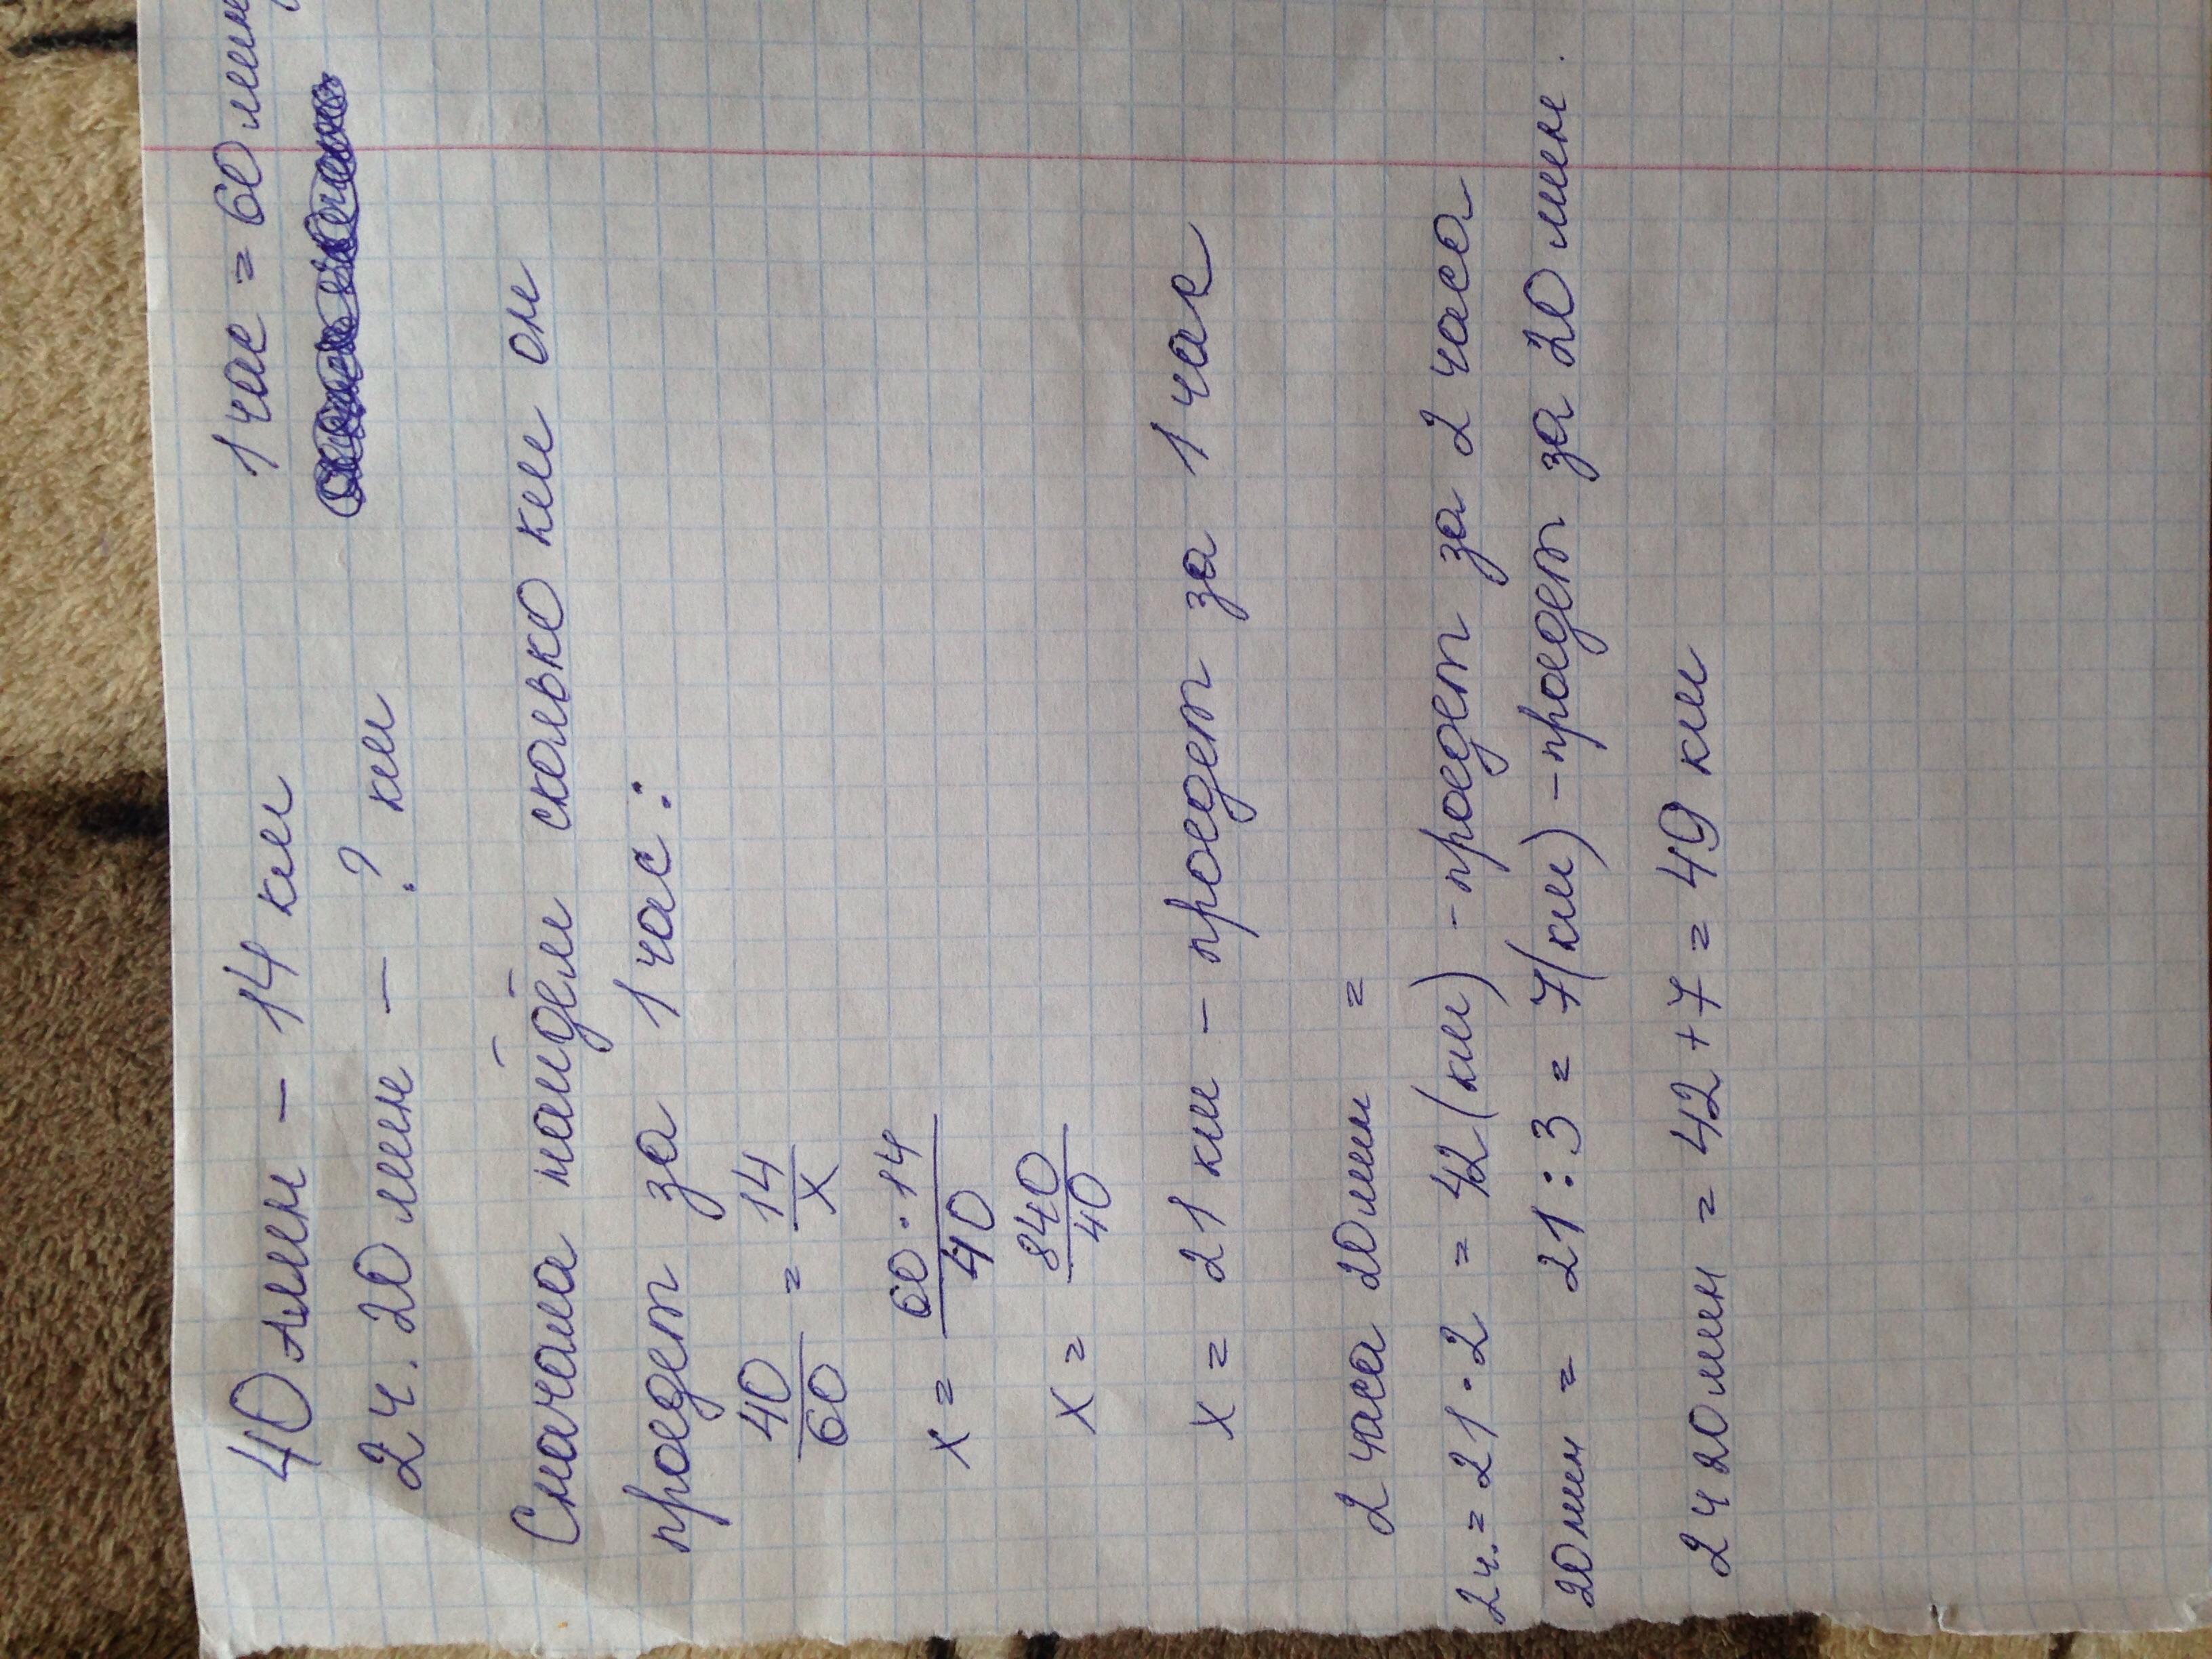 40 мин – 14 км 1 час = 60 мин
2 ч. 20 мин – ? км
Сначала найдём сколько км он
проедет за 1 час:
40/60 = 14/x
x = 60·14/40
x = 840/40
x = 21 км – проедет за 1 час
2 часа 20 мин =
2 ч. = 21·2 = 42 (км) – проедет за 2 часа
20 мин = 21:3 = 7 (км) – проедет за 20 мин.
2 ч 20 мин = 42+7 = 49 км